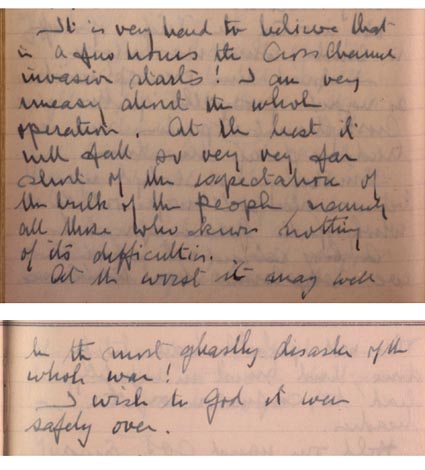 It is very hard to believe that
in a few hours the Cross Channel
invasion starts! I am very
uneasy about the whole
operation. At the best it
will fall so very very far
short of the expectation of
the bulk of the people, namely
all those who know nothing
of its difficulties.
At the worst it may well
be the most ghastly disaster of the
whole war!
I wish to God it were
safely over.